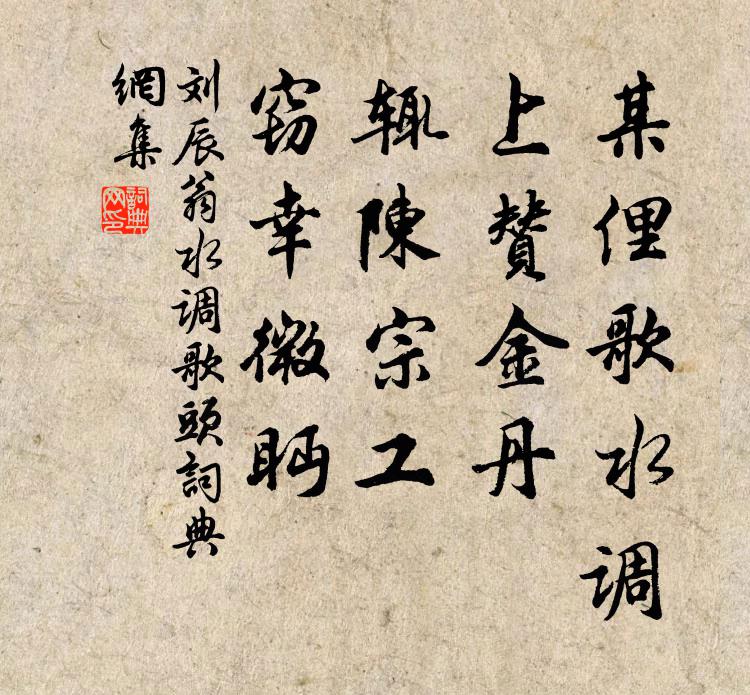 某俚歌水调
上赞金丹
辄陳宗工
窃幸微眄
刘辰翁水调歌頭詞典
網集
詞典网印